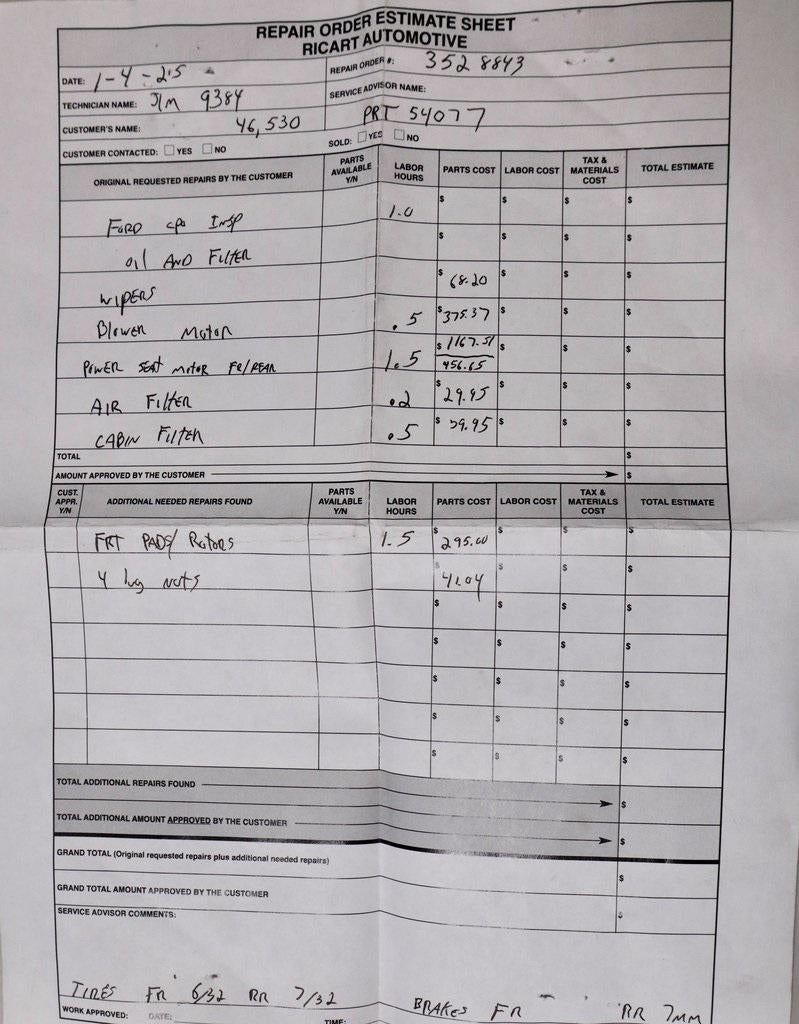 REPAIR ORDER ESTIMATE SHEET
RICART AUTOMOTIVE
DATE: 1-4-25 REPAIR ORDER #: 3528843
TECHNICIAN NAME: JIM 9384 SERVICE ADVISOR NAME:
CUSTOMER'S NAME: 46,530 PRT 54077
CUSTOMER CONTACTED: YES NO SOLD: YES NO
ORIGINAL REQUESTED REPAIRS BY THE CUSTOMER PARTS AVAILABLE Y/N LABOR HOURS PARTS COST LABOR COST TAX & MATERIALS COST TOTAL ESTIMATE
FORD CPO INSP 1.0 $ $ $ $
OIL AND FILTER $ $ $ $
WIPERS $ 68.20 $ $ $
Blower Motor .5 $ 375.37 $ $ $
POWER SEAT MOTOR FR/REAR 1.5 $ 1167.51 $ $ $
456.65
AIR FILTER .2 $ 29.95 $ $ $
CABIN FILTER .5 $ 39.95 $ $ $
TOTAL $
AMOUNT APPROVED BY THE CUSTOMER $
CUST. APPR. Y/N ADDITIONAL NEEDED REPAIRS FOUND PARTS AVAILABLE Y/N LABOR HOURS PARTS COST LABOR COST TAX & MATERIALS COST TOTAL ESTIMATE
FRT PADS/ Rotors 1.5 $ 295.00 $ $ $
4 lug nuts $ 41.04 $ $ $
$ $ $ $
$ $ $ $
$ $ $ $
$ $ $ $
$ $ $ $
TOTAL ADDITIONAL REPAIRS FOUND $
TOTAL ADDITIONAL AMOUNT APPROVED BY THE CUSTOMER $
GRAND TOTAL (Original requested repairs plus additional needed repairs) $
GRAND TOTAL AMOUNT APPROVED BY THE CUSTOMER $
SERVICE ADVISOR COMMENTS:
TIRES FR 6/32 RR 7/32 BRAKES FR - RR 7MM
WORK APPROVED: DATE: TIME: